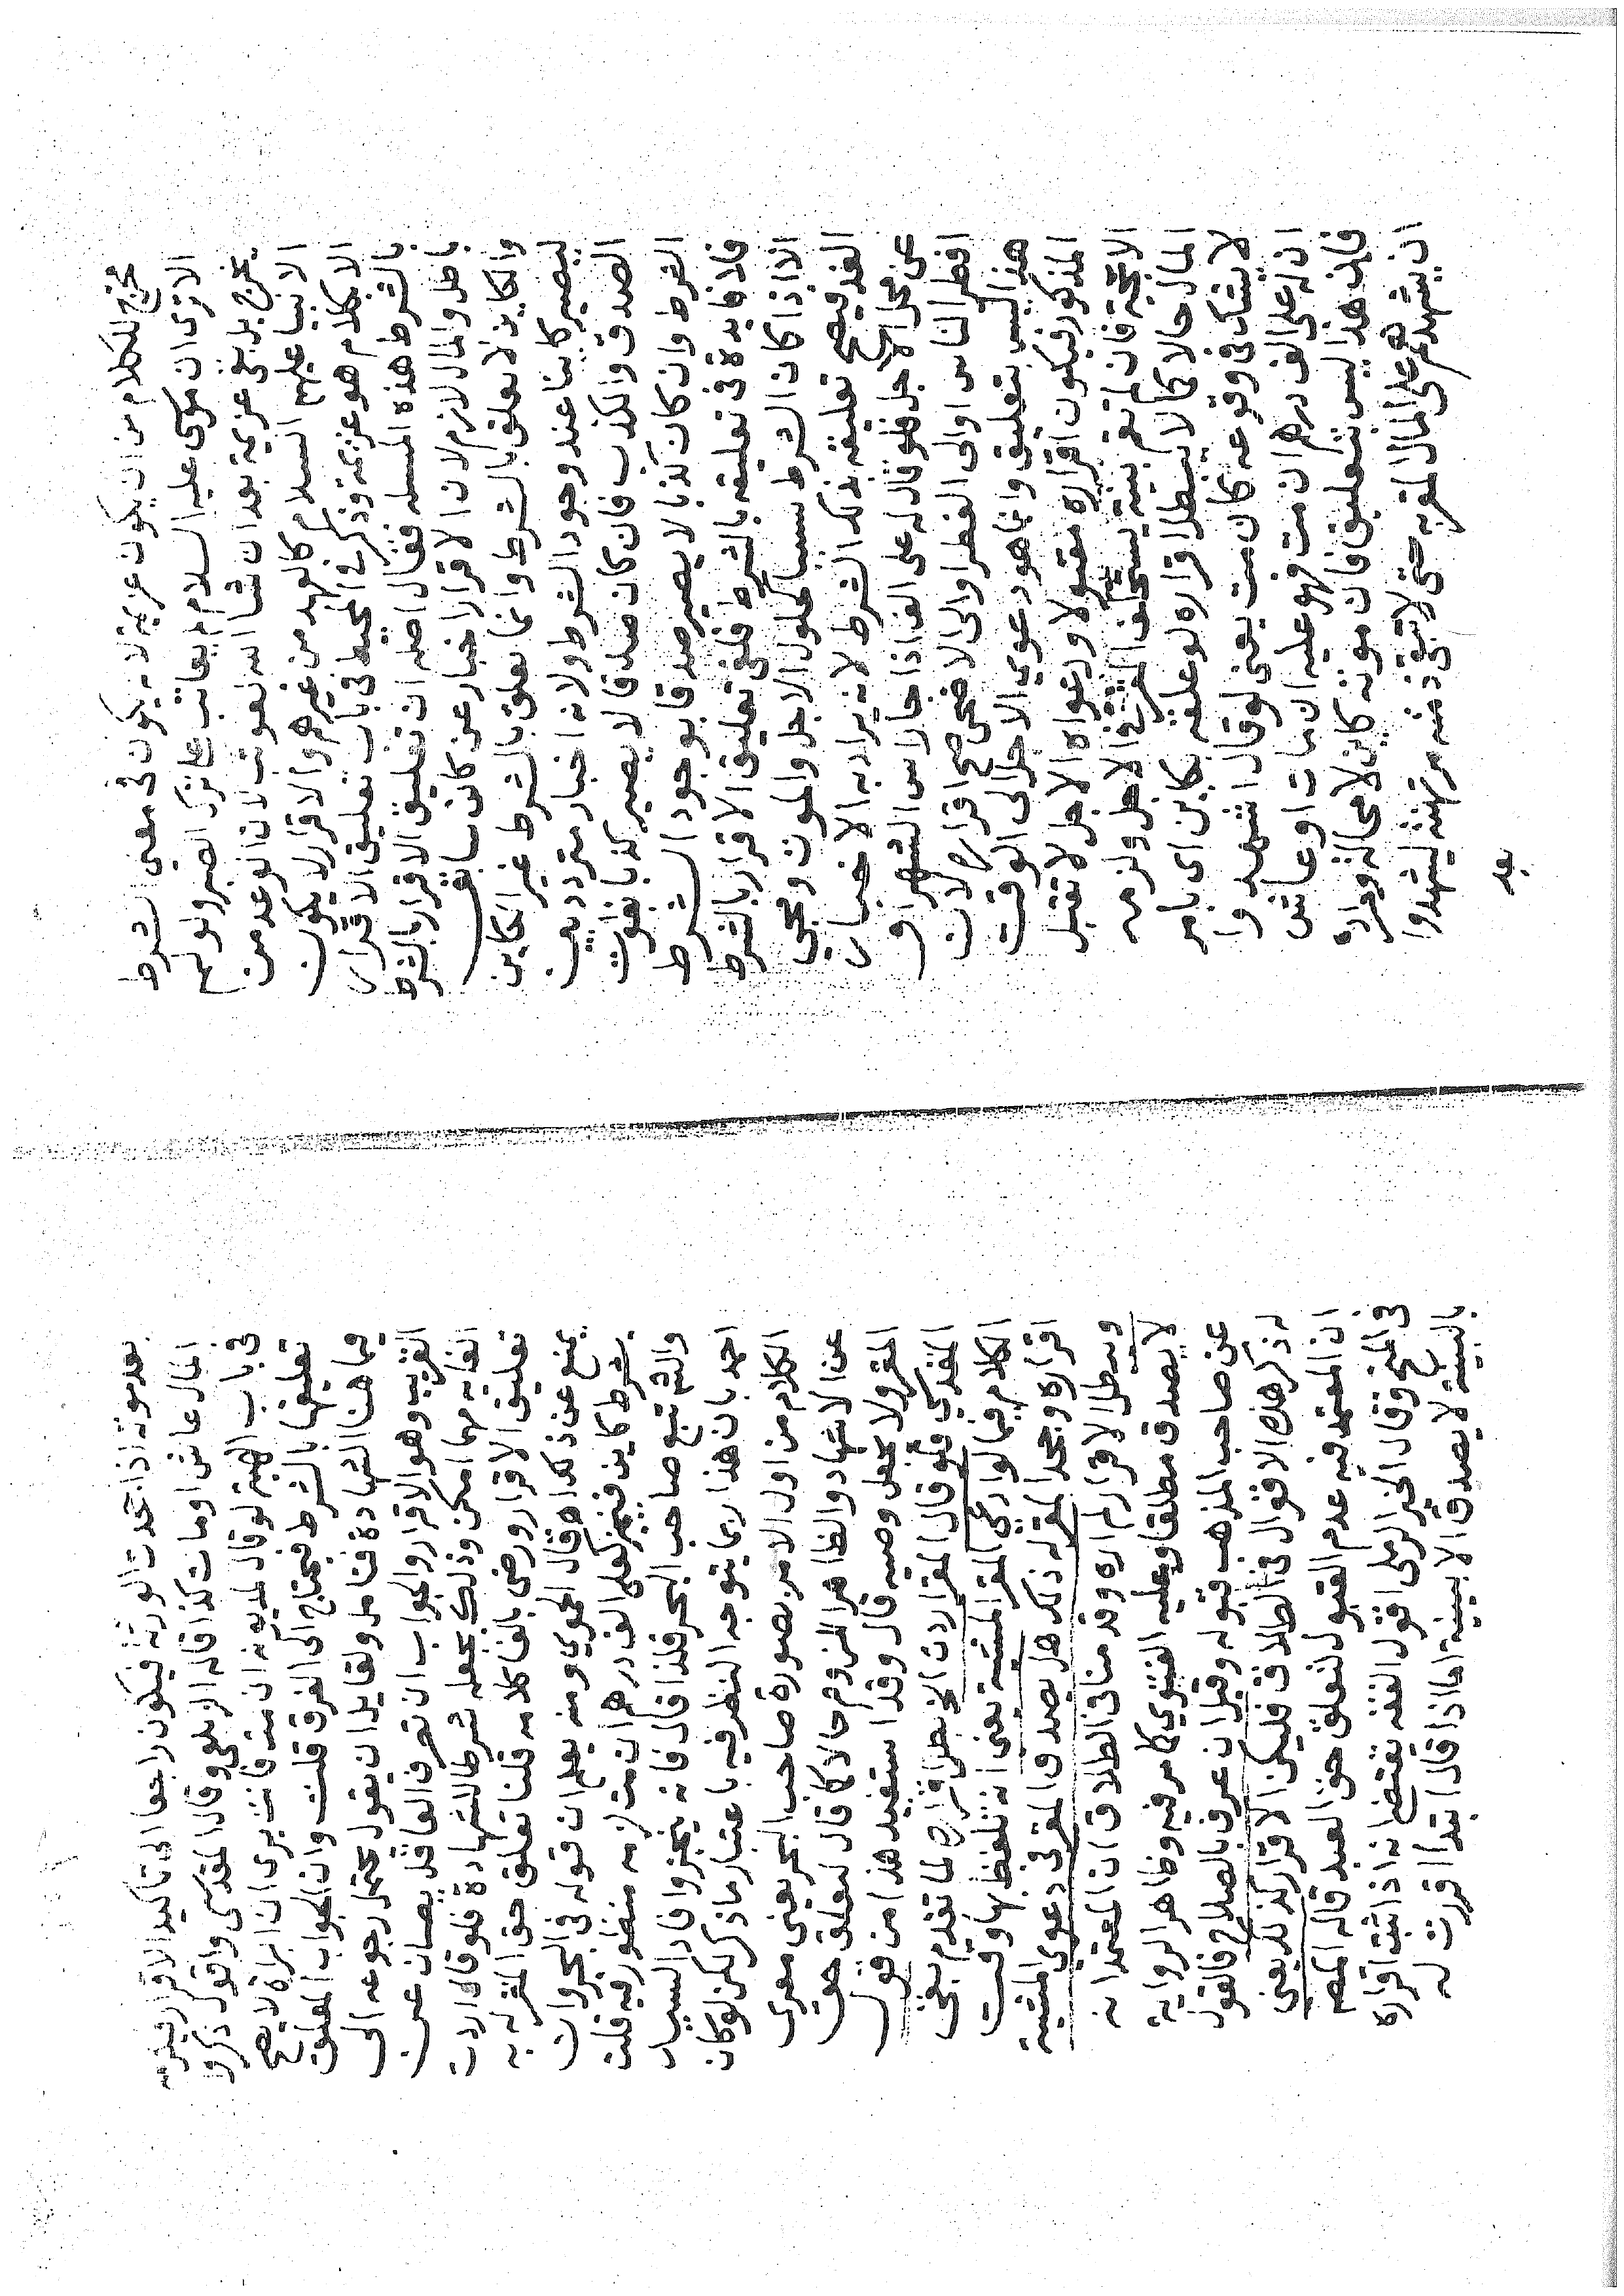 مخرج للكلام من ان يكون عزيمة لانه يكون في معنى الشرط
الا ترى ان موسى عليه السلام لم يعاتب على ترك الصبر ولو لم
يخرج بل بقي عزيمة بعد ان شا الله لعوتب لان الوعد من
الانبيا عليهم السلام كالعهد من غيرهم والاقرار لا يكون
الا بكلام هو عزيمة وذكر في المحيط في باب تعليق الاقرار
بالشرط هذه المسله فقال اصله ان تعليق الاقرار بالشرط
باطل والمال لازم لان الاقرار اخبار عن كائن سابق
والكاين لا يعلق بالشرط وانما يعلق بالشرط غير الكاين
ليصير كاينا عند وجود الشرط ولانه اخبار متردد بين
الصدق والكذب فان كان صدقا لا يصير كذبا بفوات
الشرط وان كان كذبا لا يصير صدقا بوجود الشرط
فلا فايدة في تعليقه بالشرط فلغى تعليق الاقرار بالشرط
الا اذا كان الشرط سببا لحلول الاجل والموت ومجي
الغد فيصح تعليقه بذلك الشرط لانه يراد به الاخبار
عن محل الاجل فلو قال له علي الف اذا جا راس الشهر او
افطر الناس او الى الفطر او الى الاضحى صح اقراره لان
هذا ليس بتعليق وانما هو دعوي الاجل الى الوقت
المذكور فيكون اقراره مقبولا ودعواه الاجل لا تقبل
الا بحجة فان لم تقم بينة يستحلف المقر في الاجل ولزمه
المال حالا كما لا يبطل اقراره لو علقه بكاين اى بامر
لا يشك في وقوعه كان مت يعني لو قال اشهدوا
ان له علي الف درهم ان مت فهو عليه ان مات او عاش
فان هذا ليس بتعليق فان موته كاين لا محالة ومراده
ان يشهدهم على المال المقر به حتى لا تبقى ذمته مرتهنة ليشهدوا
بعد
بعد موته اذا جحدت الورثة فيكون راجعا الى تاكيد الاقرار فيلزمه
المال عاش او مات كذا قاله الزيلعي وقال المقدسي واقول ذكروا
في باب الهبة لو قال لمديونه ان مت فانت بري ان البراة لا تصح
تعليقها بالشرط فيحتاج الى الفرق قلت وان الجواب المعلق
فيما هنا الشهادة فتامل ولقايل ان يقول يحتمل رجوعه الى
القريب وهو الاقرار والجواب ان تصرف العاقل يصان عن
الغايه مهما امكن وذلك بجعله شرطا للشهادة فلو قال اردت
تعليق الاقرار ورضي بالغا كلامه قلنا تعلق حق المقر له به
يمنع عن ذلك اه قال الحموي ومنه يعلم ان قوله في الجواب
بشرط كاين فيتنجز كعلي الف درهم ان مت لزمه منظور فيه قلت
والشم تبع صاحب البحر فلذا قال فانه ينجز وافاد السيد
احمد بان هذا ربما يتوجه النظر فيه باعتبار ما ذكر لكن لو كان
الكلام من اول الامر بصورة صاحب البحر يعني معرى
عن الاشهاد والظاهر اللزوم حالا كما قال لتعلق حق
المقر ولا يجعل وصيه قال وقد استفيد هذا من قول
المقدسي فلو قال المقر اردت الخ بطل اقراره لما تقدم بقى
الكلام فيما لو ادعى المقر المشية يعني انه تلفظ بها وقت
اقراره وجحد المقر له ذلك هل يصدق المقر في دعوي المشية
وتبطل الاقرار لم اره وقدمنا في الطلاق ان المعتمد انه
لا يصدق مطلقا وعليه الفتوي كما مر فيه وظاهر الرواية
عن صاحب المذهب قبوله وقيل ان عرف بالصلاح فالقول
له ذكر هذه الاقوال في الطلاق فليكن الاقرار كذلك يعني
ان المعتمد فيه عدم القبول لتعلق حق العبد قاله المصم
في المنح وقال الخير الرملي اقول الفقه يقتضي انه اذا ثبت اقراره
بالبينة لا يصدق الا ببينة اما اذا قال ابتدا اقررت له